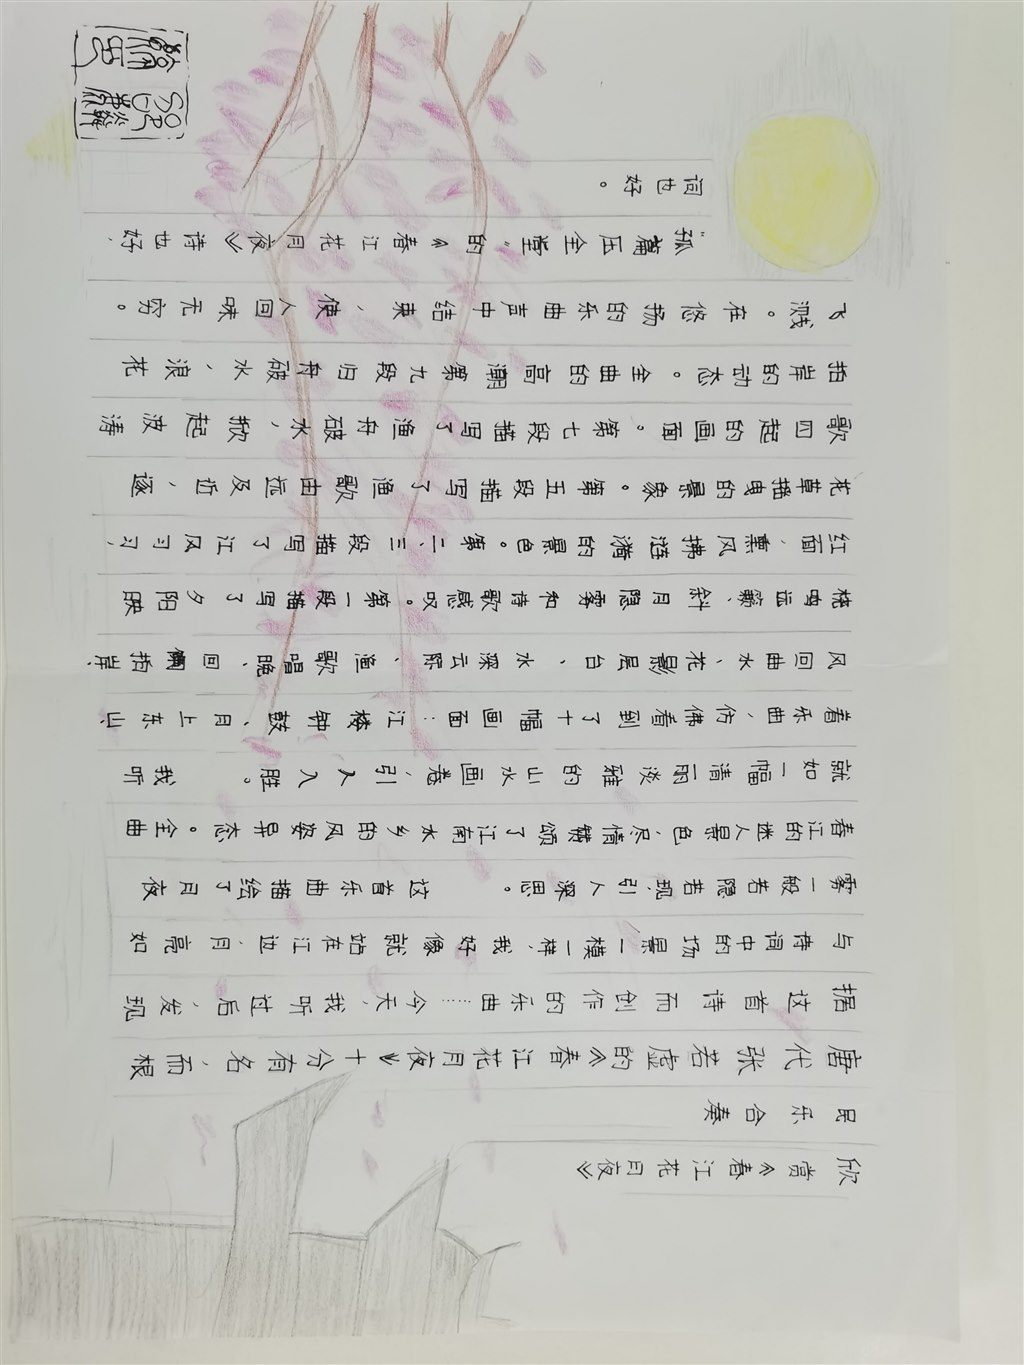 欣赏《春江花月夜》
民乐合奏
唐代张若虚的《春江花月夜》十分有名,而根
据这首诗而创作的乐曲……今天,我听过后,发现
与诗词中的场景一模一样,我好像就站在江边,月亮如
雾一般若隐若现,引人深思。 这首乐曲描绘了月夜
春江的迷人景色,尽情赞颂了江南水乡的风姿异态。全曲
就如一幅清丽淡雅的山水画卷,引人入胜。 我听
着乐曲,仿佛看到了十幅画面:江楼钟鼓、月上东山、
风回曲水、花影层台、水深云际、渔歌唱晚、回拍岸、
桡鸣远籁、斜月隐雾和诗歌感叹。第一段描写了夕阳映
红面,熏风拂涟漪的景色。第二、三段描写了江风习习,
花草摇曳的景象。第五段描写了渔歌由远及近,逐
歌四起的画面。第七段描写了渔舟破水,掀起波涛
拍岸的动态。全曲的高潮第九段归舟破水,浪花
飞溅。在悠扬的乐曲声中结束,使人回味无穷。
“孤篇压全堂”的《春江花月夜》诗也好,
词也好。